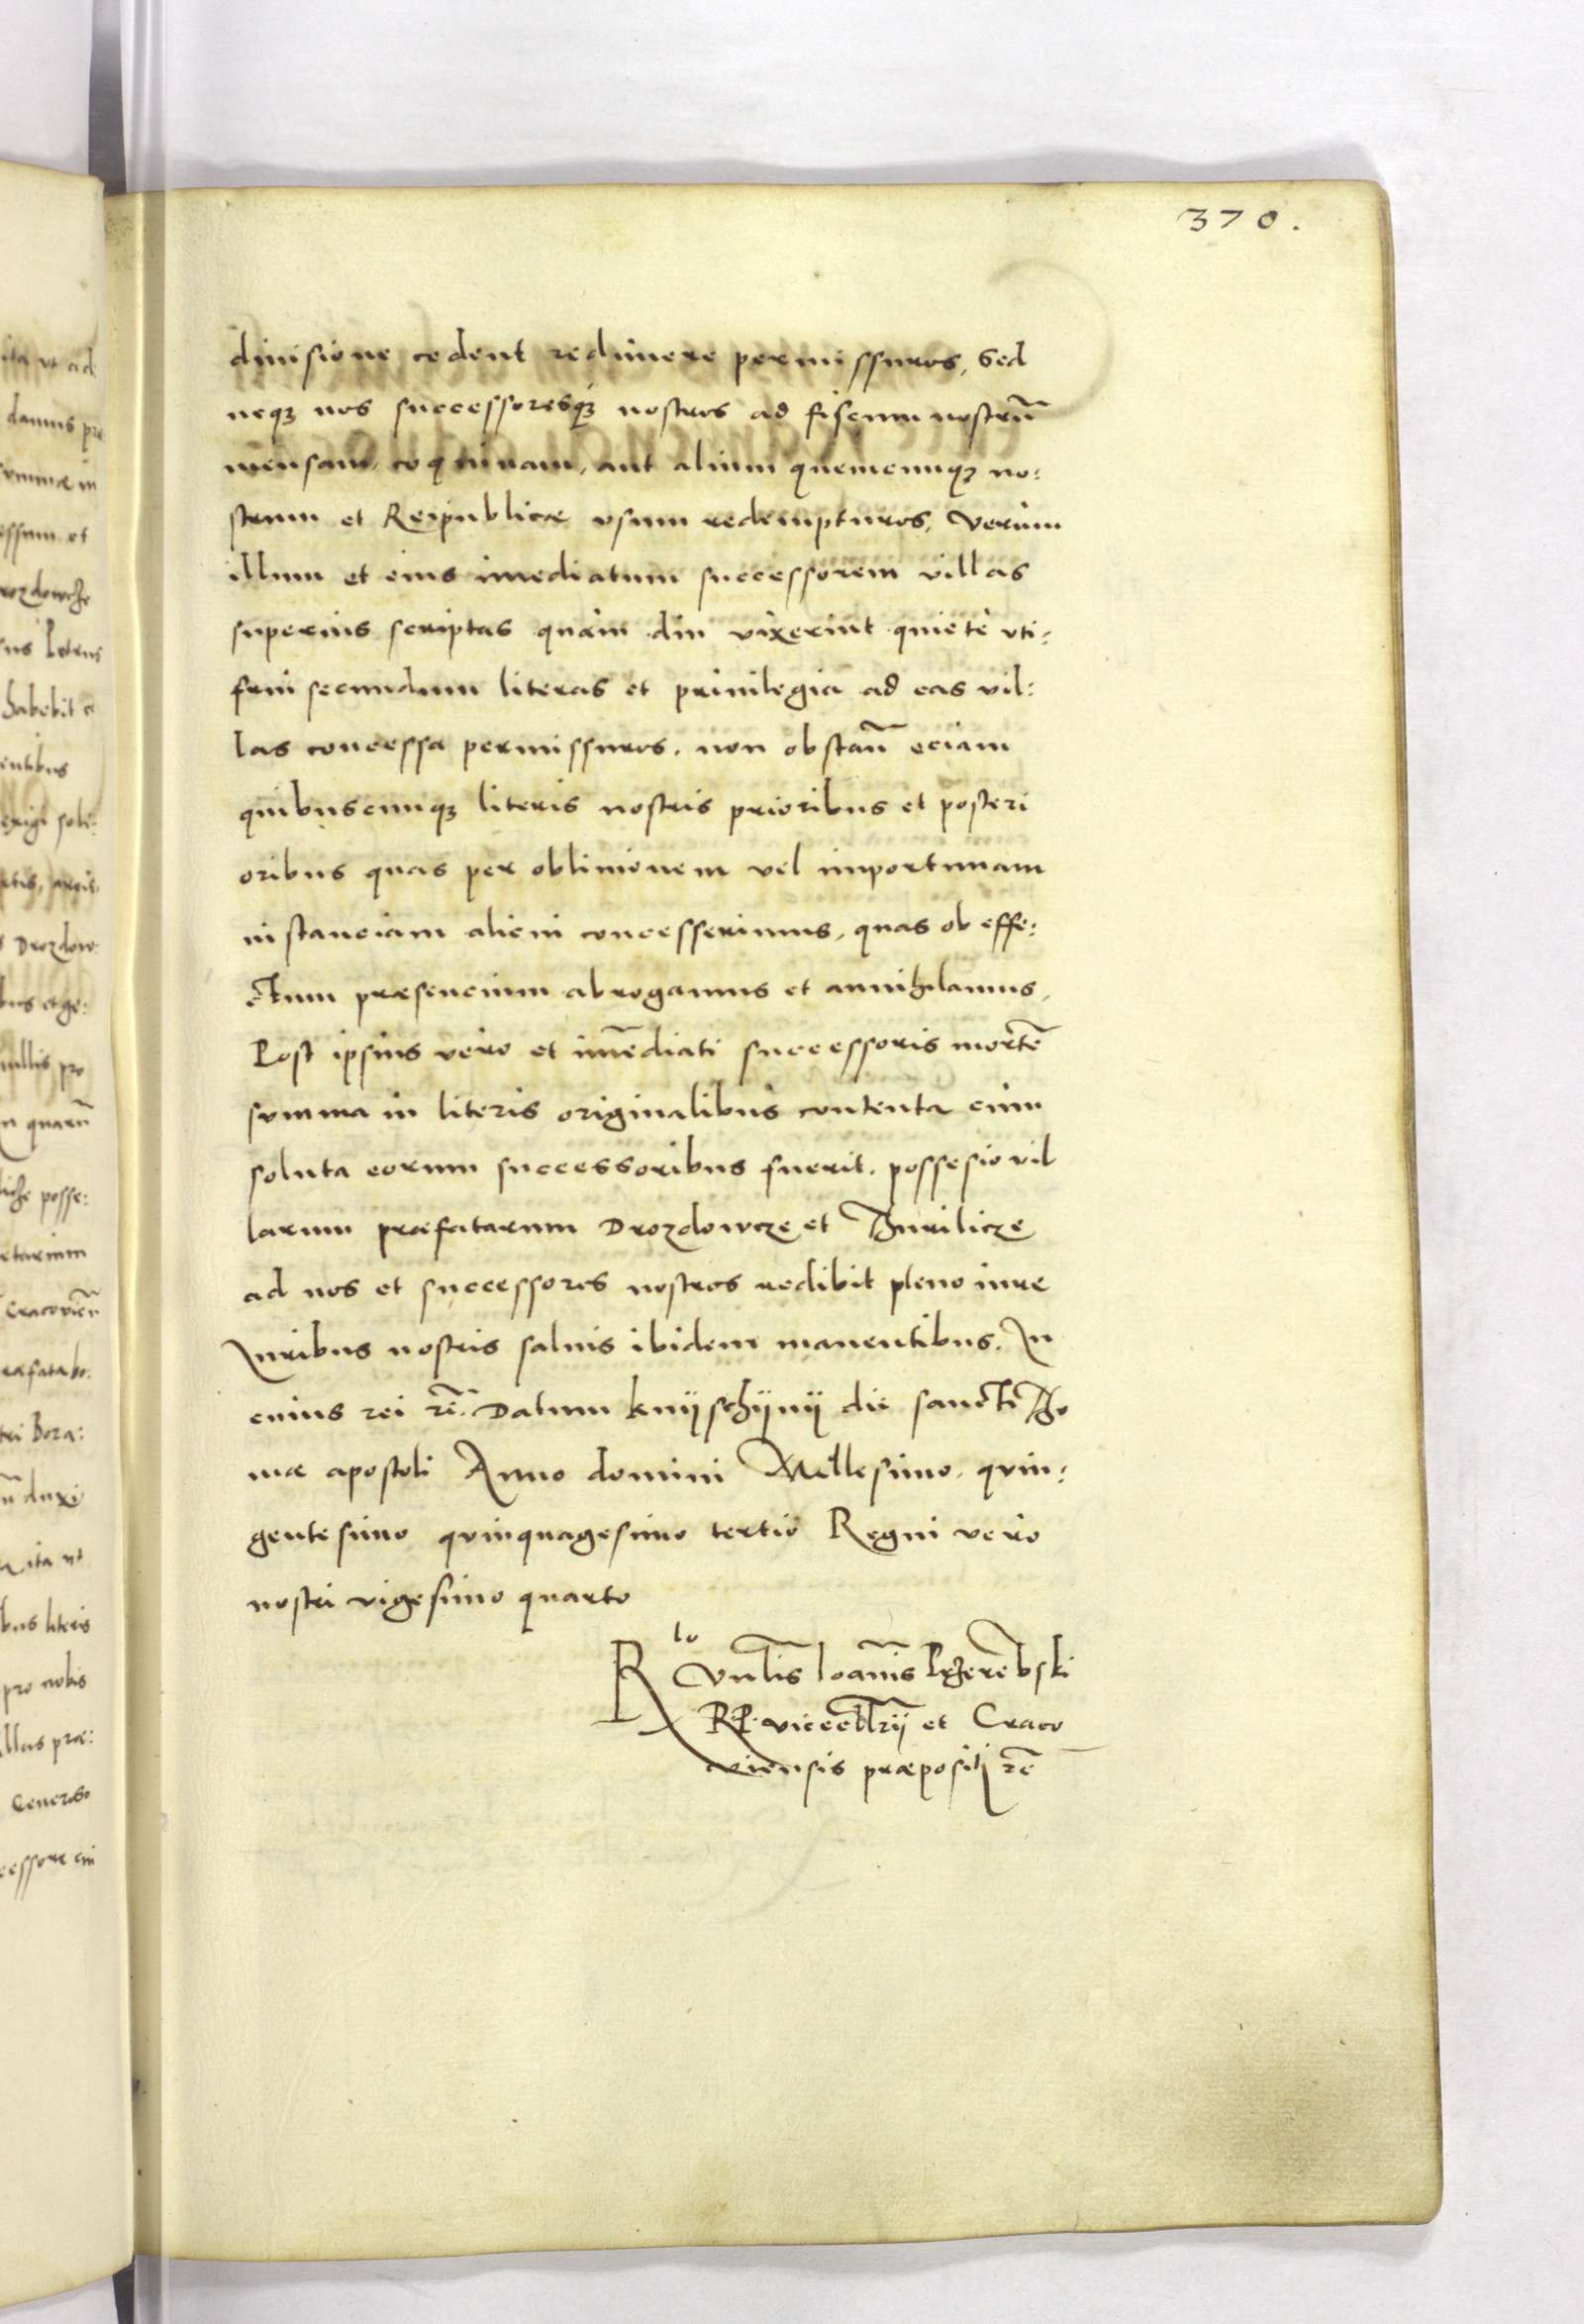 370.
diuisione cedent redimere permissuros, Sed
neq₃ nos successoresq₃ nostros ad fiscum nostrũ
mensam, coquinam, aut alium quemcunq₃ no:
strum et Reipublicæ vsum redempturos, Verum
illum et eius imediatum successorem villas
superius scriptas quam diu vixerint quietè vti:
frui secundum literas et priuilegia ad eas vil:
las concessa permissuros. non obstañ eciam
quibuscunq₃ literis nostris prioribus et posteri
oribus quas per obliuionem vel importunam
instanciam alicui concesserimus, quas ob effe:
ctum præsencium abrogamus et annihilamus,
Post ipsius vero et imẽdiati successoris mortẽ
summa in literis originalibus contenta cum
soluta eorum successoribus fuerit. possesio vil
larum præfatarum Drozdowcze et Thurilicze
ad nos et successores nostros redibit pleno iure
Iuribus nostris saluis ibidem manentibus. In
cuius rei rẽ. Datum knÿschÿnÿ die sancti Tho
mæ apostoli Anno domini Millesimo. quin:
gentesimo quinquagesimo tertio Regni vero
nostri vigesimo quarto
R lo Vnlis Ioañis Przerẽbski
R.P. vicecllrÿ et Craco
viensis præpositi rẽ
ita vt ad
damus præ
summæ in
ossum et
rozdowcze
sus Petrus
habebit
entibus
exigi
Drozdow
nullis pro
quarũ
posse:
Cracovieñ
ræfata bo:
tri Bora:
duxi
ita vt
bus literis
pro nobis
illas præ:
cessore